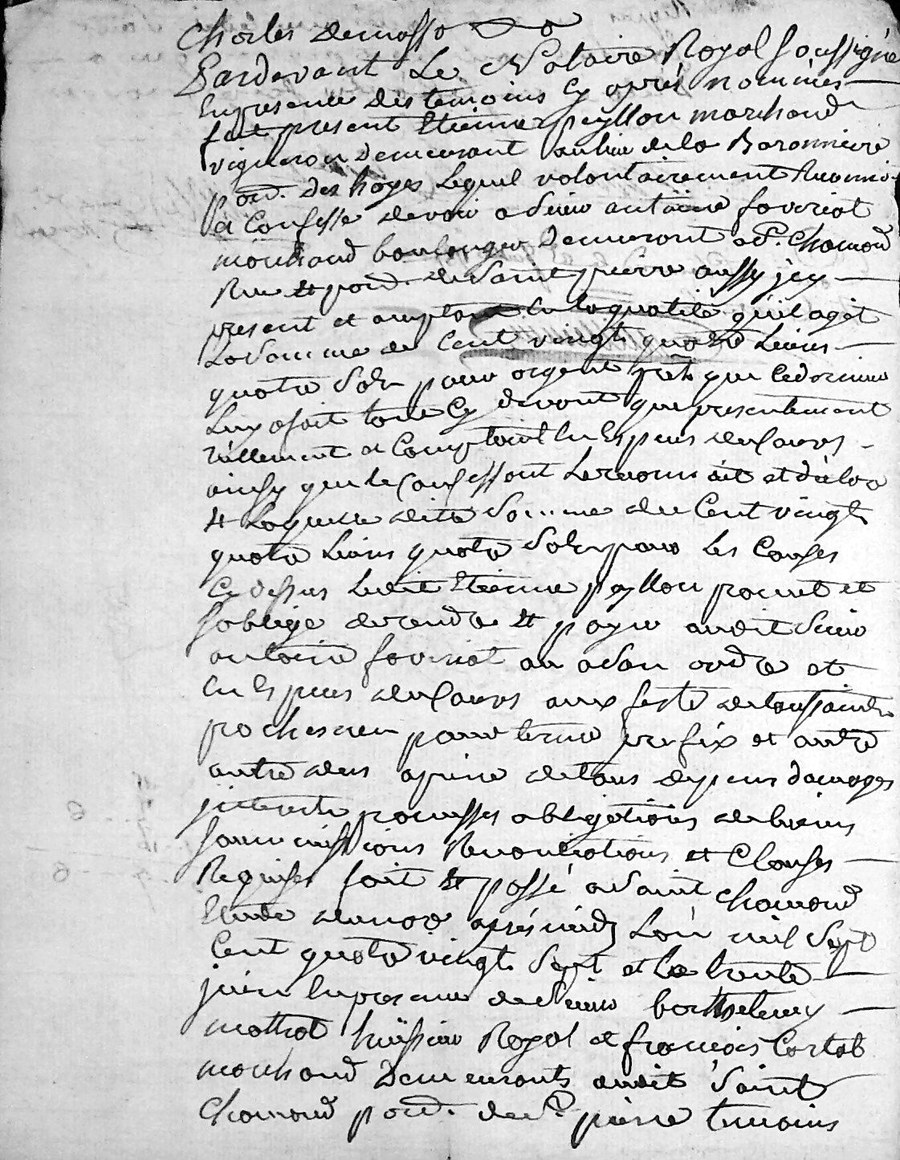 Charles demosse
Pardevant Le Notaire Royal soussigné
En presence des temoins Cy aprés nommés
fut present Etienne peyllon marchand
vigneron demeurant au lieu de la Baronniere
parr. des hayes Lequel volontairement
a Confessé devoir a Sieur antoine foveriot
marchand boulanger demeurant a St. Chamond
Rue et parr. de Saint pierre aussy jcy
present et acceptant En la qualité qu'il agit
La Somme de Cent vingt quatre Livres
quatre Sols pour argent prêté que Ce dernier
Luy a fait tant Cy devant que presentement
réellement et Comptant En Especes de Cours
ainsy qu'il le Confessant Le reconnoit et déclare
et Laquelle ditte Somme de Cent vingt
quatre Livres quatre Sols pour Les Causes
Cy dessus Ledit Etienne peyllon promet et
S'oblige de rendre et payer audit Sieur
antoine foveriot ou a Son ordre et
En Especes de Cours aux feste de toussaints
prochesnes pour terme prefix et
a peine de tous depens domages
jnterets promesses obligations de biens
Soumissions Renonciations et Clauses
Requises fait et passé a Saint Chamond
Etude aprés midy L'an mil Sept
Cent quatre vingt Sept et Le trente
juin En presence de Sieur barthelemy
mathat huissier Royal et françois Cortab
marchand Demeurants audit Saint
Chamond parr. de St. pierre temoins